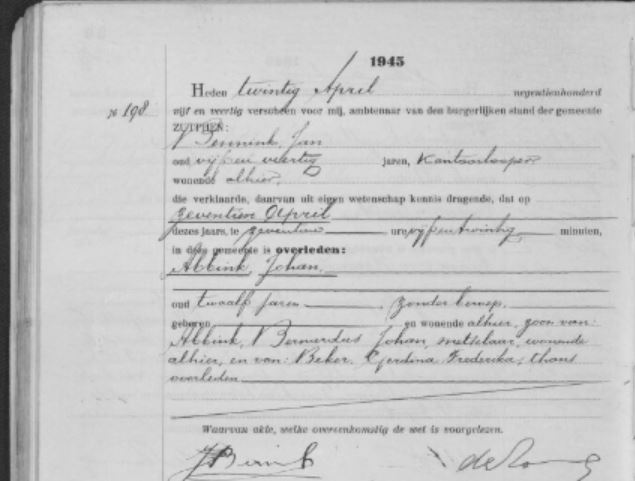 1945
Heden twintig April negentienhonderd
No 198
vijf en veertig verscheen voor mij, ambtenaar van den burgerlijken stand der gemeente
ZUTPHEN:
Jan
oud vijf en veertig jaren, Kantoorlooper
wonende alhier,
die verklaarde, daarvan uit eigen wetenschap kennis dragende, dat op
zeventien April
dezes jaars, te zeventien ure vijfentwintig minuten,
in deze gemeente is overleden:
Abbink, Johan
oud twaalf jaren zonder beroep,
geboren en wonende alhier, zoon van:
Abbink, Bernardus Johan, metselaar, wonende
alhier, en van: Beker, Gerdina Frederika, thans
overleden
Waarvan akte, welke overeenkomstig de wet is voorgelezen.